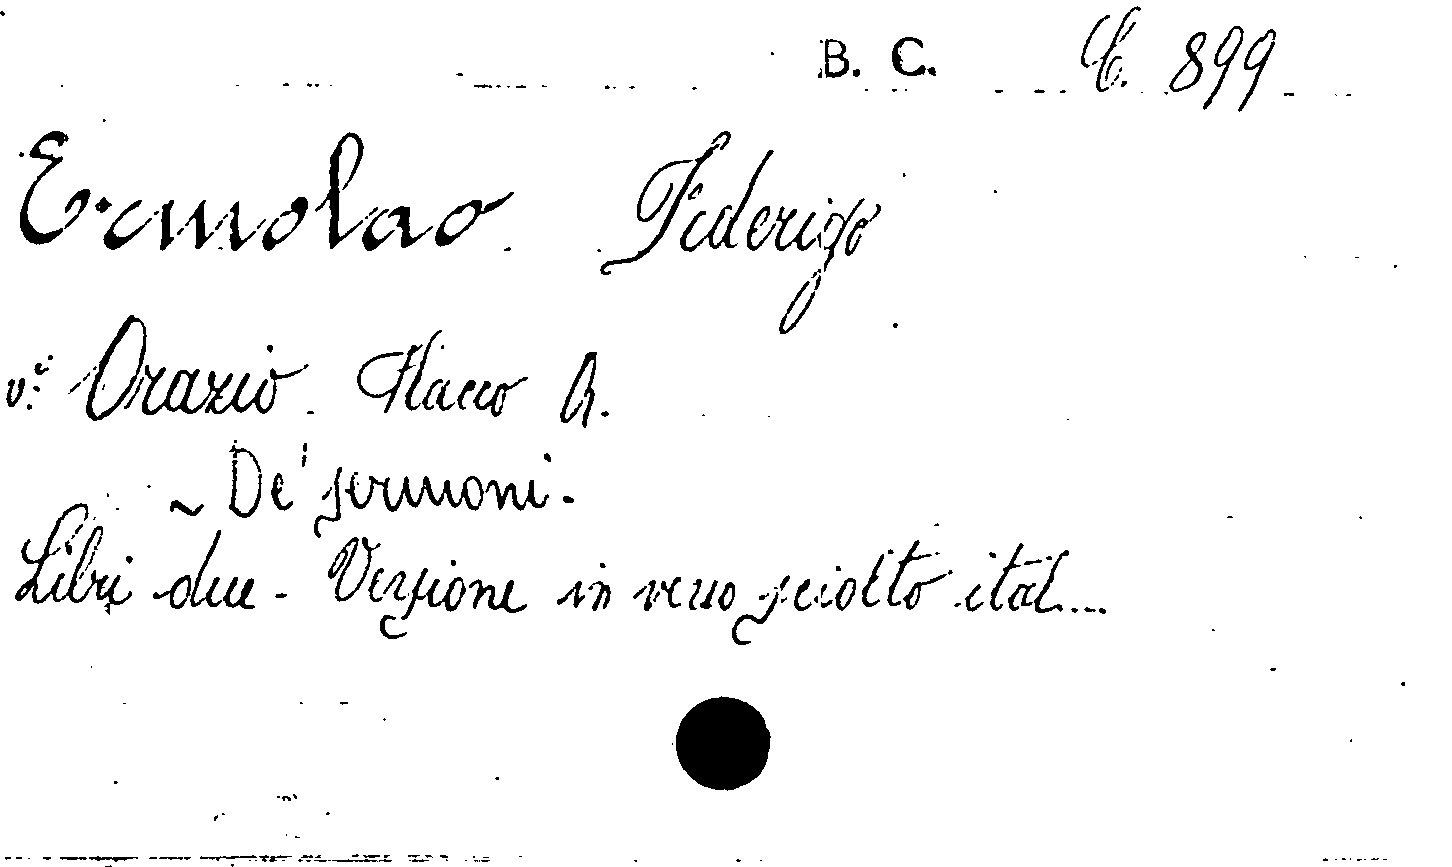 B. C. C. 899
Ermolao Federigo
v.i Orazio Flacco Q.
~ De' sermoni.
Libri due. Versione in verso sciolto ital....